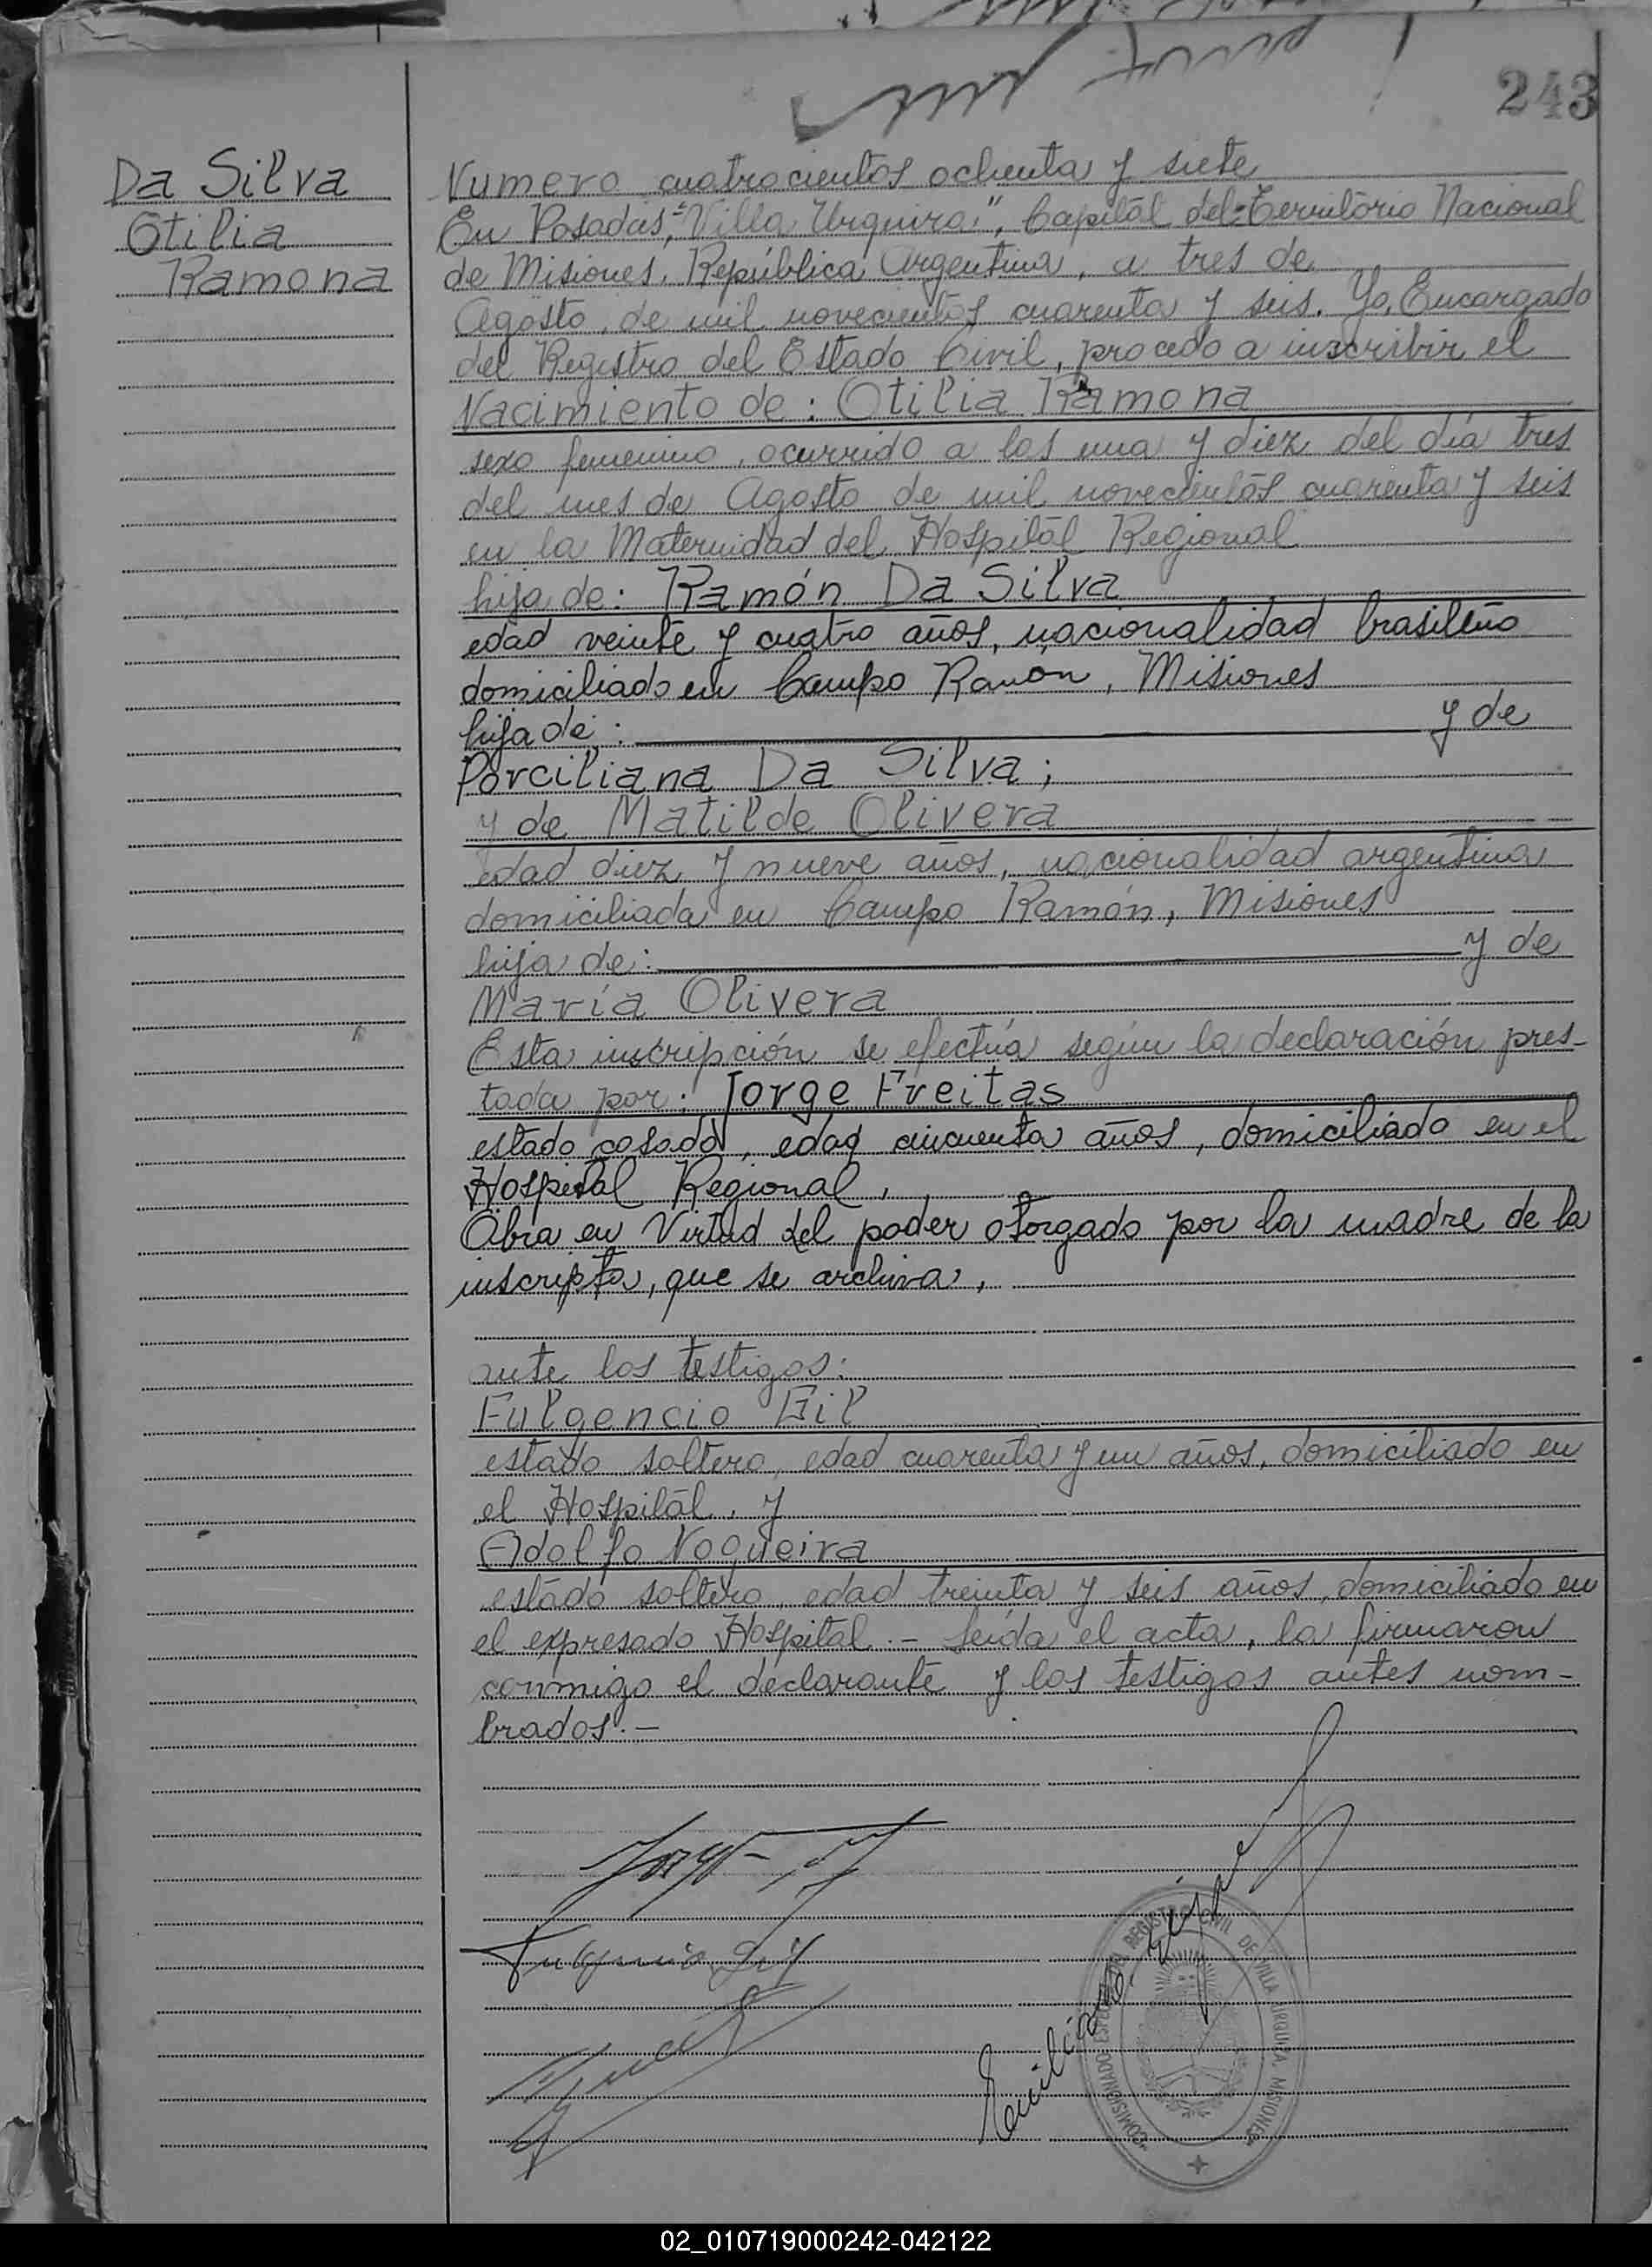 243
Da Silva
Otilia
Ramona
Numero cuatrocientos ochenta y siete
En Posadas, "Villa Urquiza", Capital del Territorio Nacional
de Misiones, República Argentina, a tres de
Agosto, de mil novecientos cuarenta y seis. Yo, Encargado
del Registro del Estado Civil, procedo a inscribir el
Nacimiento de: Otilia Ramona
sexo femenino, ocurrido a las una y diez del día tres
del mes de Agosto de mil novecientos cuarenta y seis
en la Maternidad del Hospital Regional
hija de: Ramón Da Silva
edad veinte y cuatro años, nacionalidad brasileño
domiciliado en Campo Ramón, Misiones
hija de: y de
Porciliana Da Silva;
y de Matilde Olivera
edad diez y nueve años, nacionalidad argentina
domiciliada en Campo Ramón, Misiones
hija de: y de
María Olivera
Esta inscripción se efectúa según la declaración pres-
tada por: Jorge Freitas
estado casado, edad cincuenta años, domiciliado en el
Hospital Regional,
Obra en Virtud del poder otorgado por la madre de la
inscripta, que se archiva,
ante los testigos:
Fulgencio Gil
estado soltero, edad cuarenta y un años, domiciliado en
el Hospital, y
Adolfo Nogueira
estado soltero, edad treinta y seis años, domiciliado en
el expresado Hospital.- Leída el acta, la firmaron
conmigo el declarante y los testigos antes nom-
brados.-
Fulgencio Gil
REGISTRO CIVIL DE VILLA URQUIZA MISIONES
02_010719000242-042122